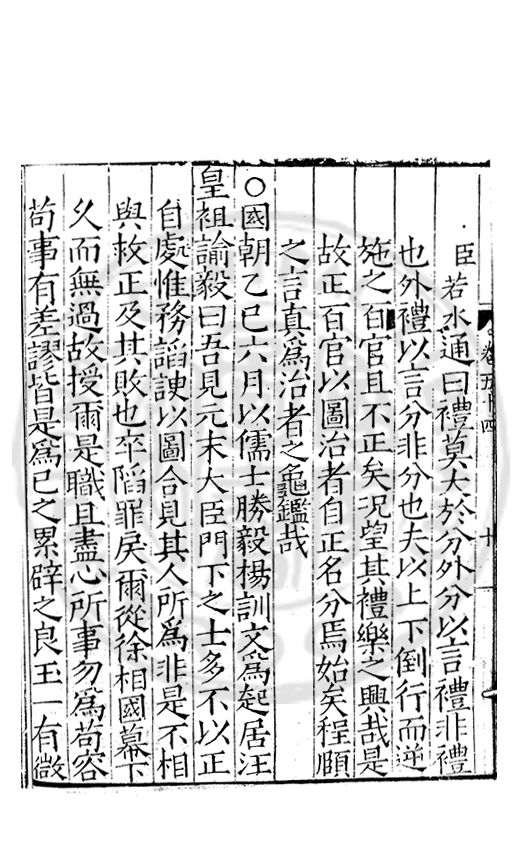 卷五十四 十
臣若水通曰禮莫大於分外分以言禮非禮
也外禮以言分非分也夫以上下倒行而逆
施之百官且不正矣况望其禮樂之興哉是
故正百官以圖治者自正名分焉始矣程頤
之言真爲治者之龜鑑哉
○國朝乙巳六月以儒士滕毅楊訓文爲起居注
皇祖諭毅曰吾見元末大臣門下之士多不以正
自處惟務謟諛以圖合見其人所爲非是不相
與救正及其敗也卒陷罪戾爾從徐相國幕下
乆而無過故授爾是職且盡心所事勿爲苟容
苟事有差謬皆是爲己之累辟之良玉一有微